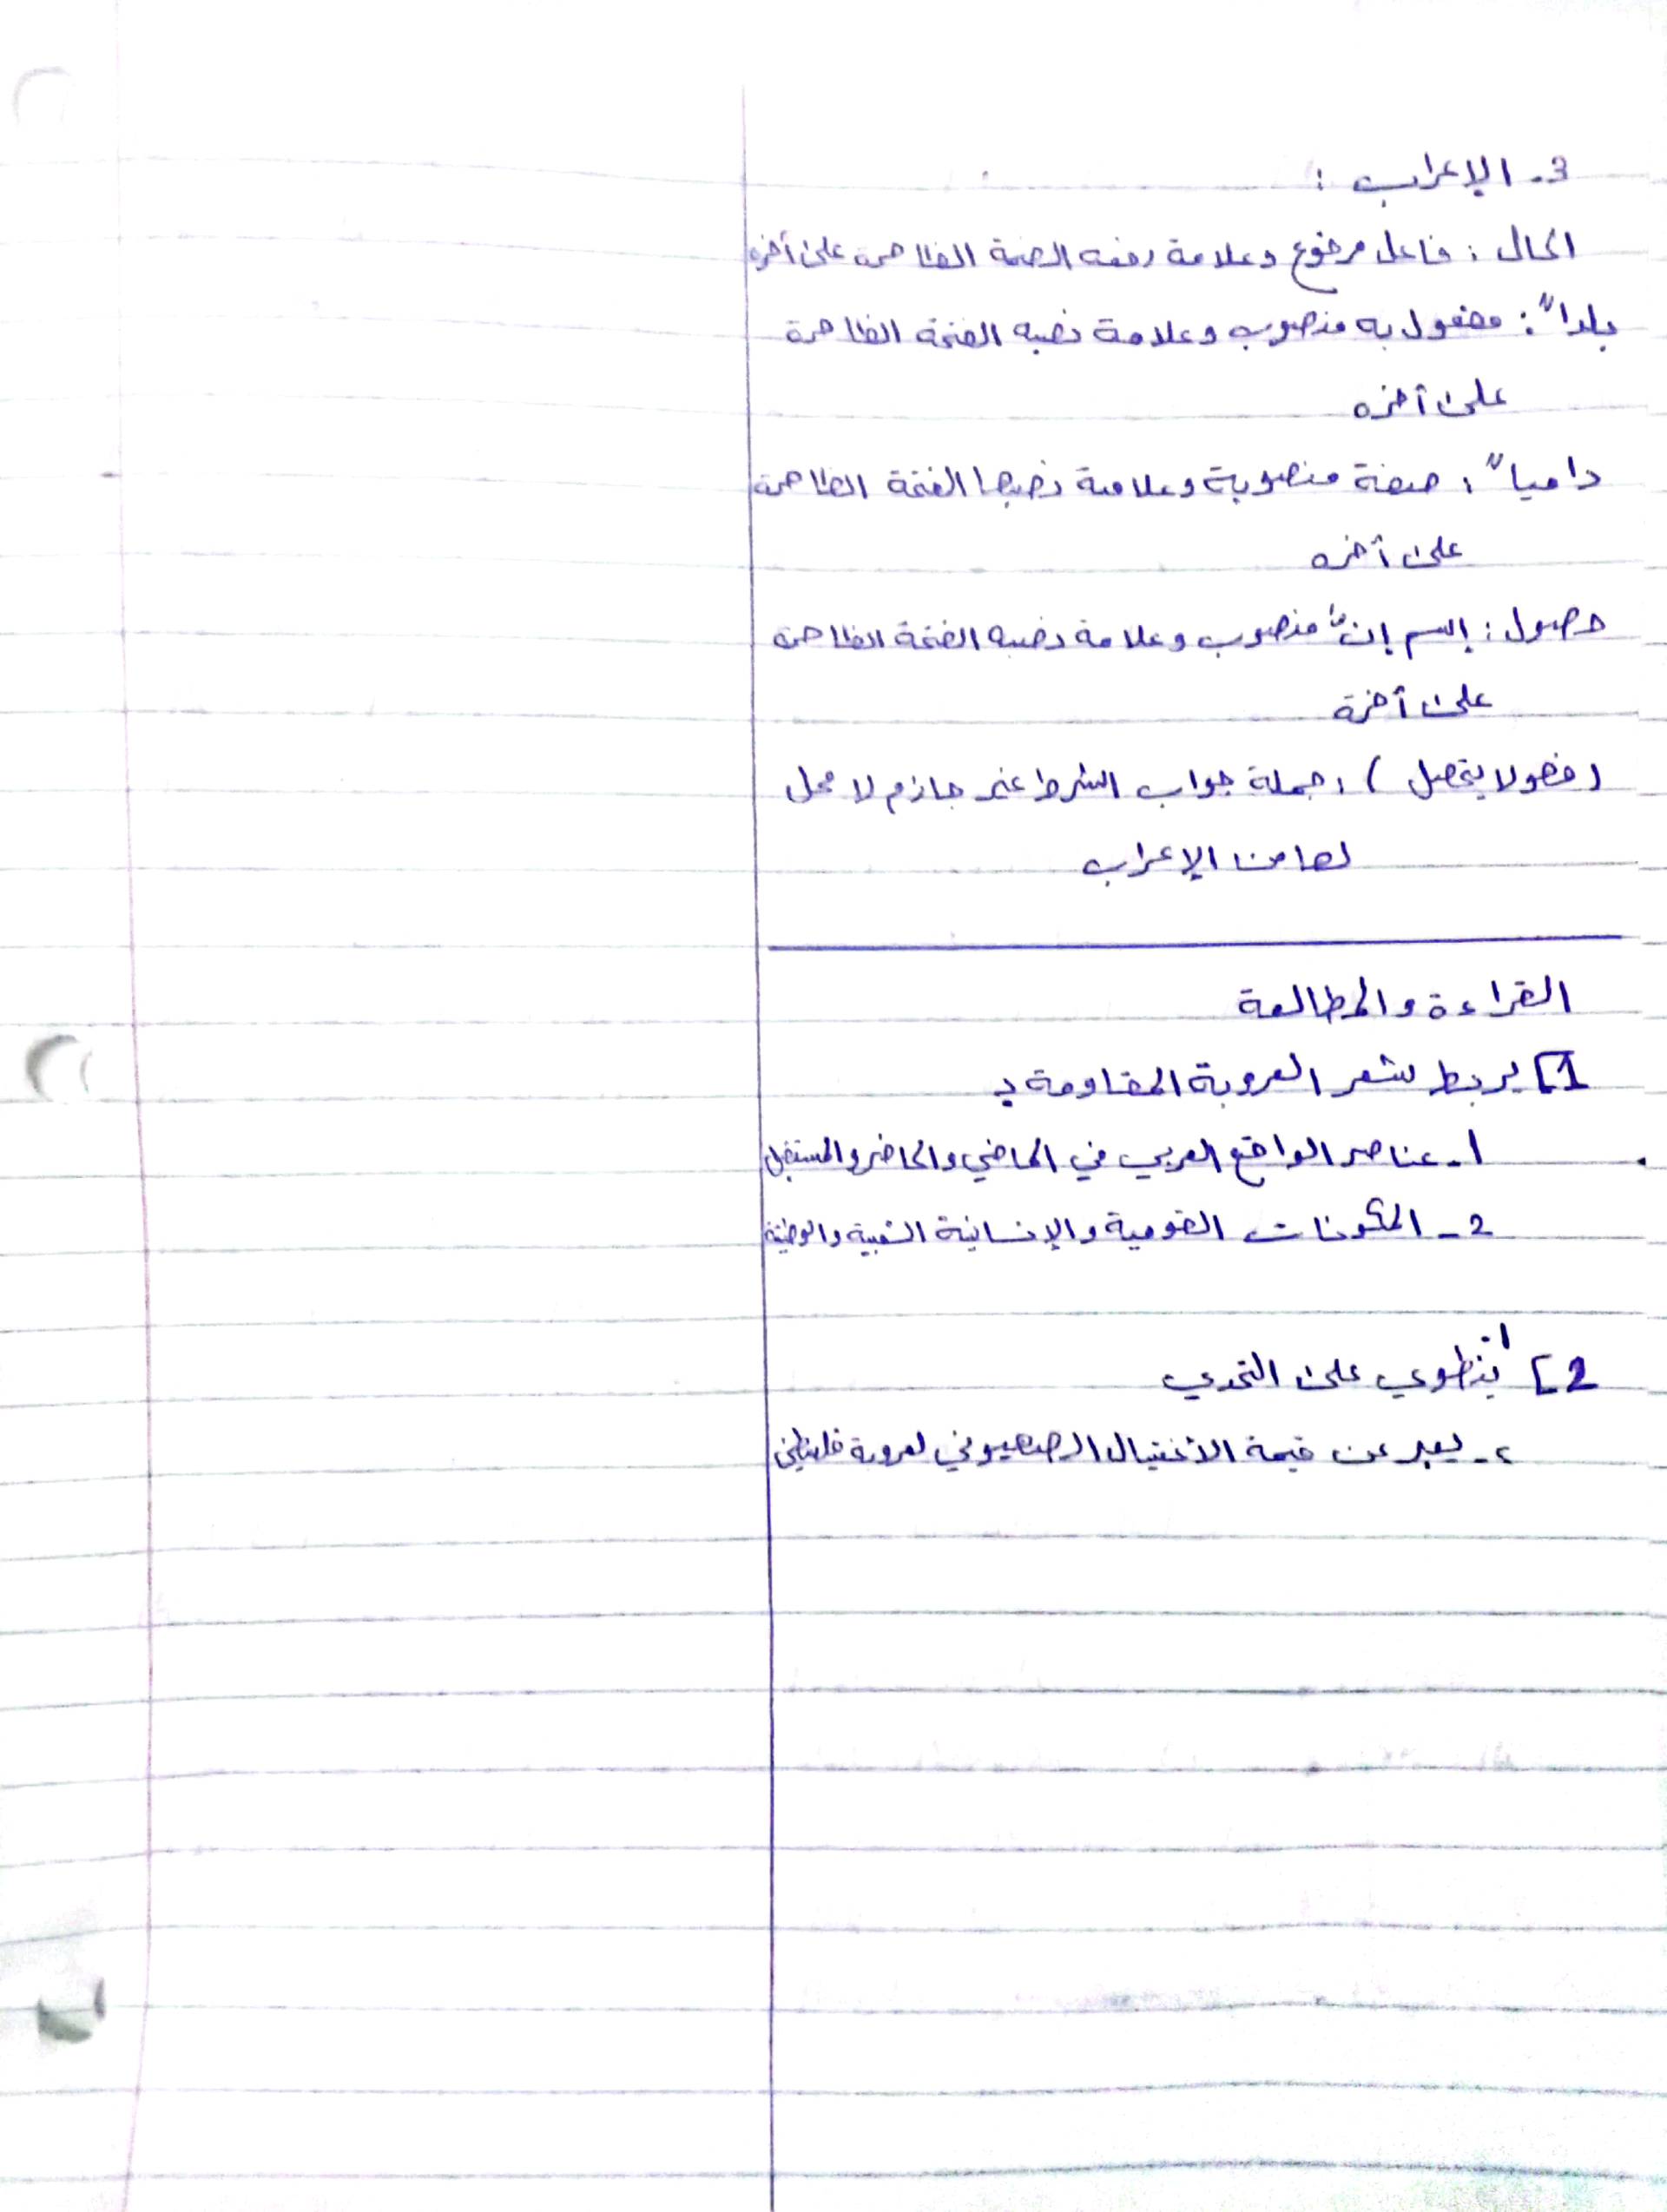 3. الإعراب :
الحال : فاعل مرفوع وعلامة رفعه الضمة الظاهرة على آخره
بلداً : مفعول به منصوب وعلامة نصبه الفتحة الظاهرة
على آخره
دامياً : صفة منصوبة وعلامة نصبها الفتحة الظاهرة
على آخره
حصول : إسم إنّ منصوب وعلامة نصبه الفتحة الظاهرة
على آخرة
(فهو لا يتصل ) : جملة جواب الشرط غير جازم لا محل
لها من الإعراب
القراءة والمطالعة
1] يربط شعر العروبة المقاومة بـ
1- عناصر الواقع العربي في الماضي والحاضر والمستقبل
2- المكونات القومية والإنسانية الشعبية والوطنية
2] 1. ينطوي على التحدي
2- يعبر عن قيمة الأغتيال الصهيوني لعروبة فلسطين